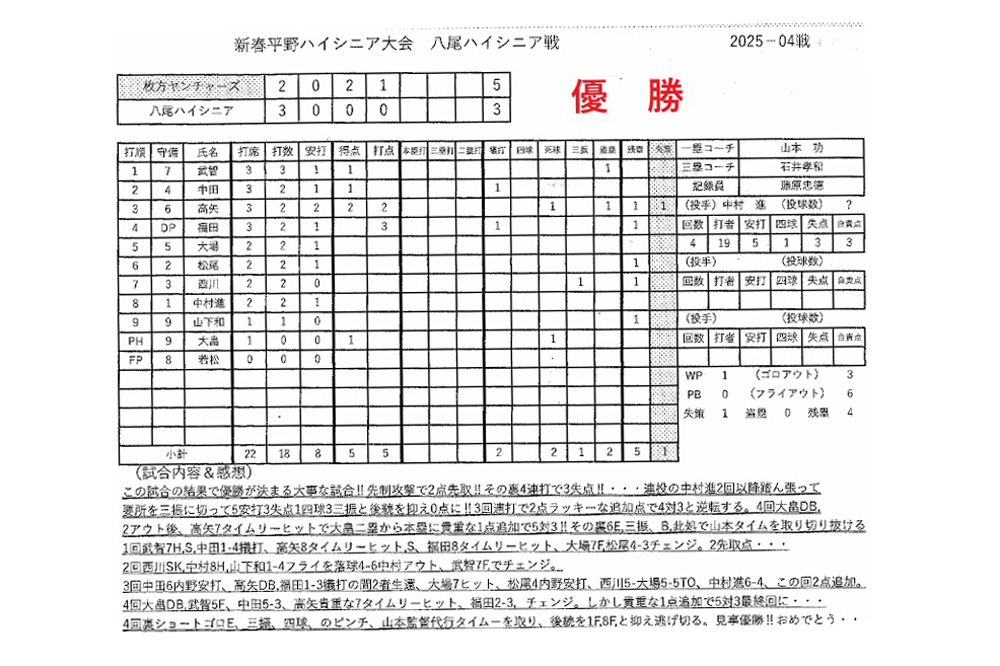 新春平野ハイシニア大会 八尾ハイシニア戦 2025-04戦
枚方ヤンチャーズ 2 0 2 1 5
八尾ハイシニア 3 0 0 0 3
優 勝
打順 守備 氏名 打席 打数 安打 得点 打点 本塁打 三塁打 二塁打 犠打 四球 死球 三振 盗塁 残塁 失策
1 7 武智 3 3 1 1 1
2 4 中田 3 2 1 1 1
3 6 高矢 3 2 2 2 2 1 1 1 1
4 DP 福田 3 2 1 3 1 1
5 5 大場 2 2 1
6 2 松尾 2 2 1 1
7 3 西川 2 2 0 1 1
8 1 中村進 2 2 1
9 9 山下和 1 1 0 1
PH 9 大畠 1 0 0 1 1
FP 8 若松 0 0 0
小計 22 18 8 5 5 2 2 1 2 5 1
一塁コーチ 山本 功
三塁コーチ 石井孝和
記録員 藤原忠徳
(投手) 中村 進 (投球数) ?
回数 打者 安打 四球 失点 自責点
4 19 5 1 3 3
(投手) (投球数)
回数 打者 安打 四球 失点 自責点
(投手) (投球数)
回数 打者 安打 四球 失点 自責点
WP 1 (ゴロアウト) 3
PB 0 (フライアウト) 6
失策 1 盗塁 0 残塁 4
(試合内容&感想)
この試合の結果で優勝が決まる大事な試合!!先制攻撃で2点先取!!その裏4連打で3失点!!・・・連投の中村進2回以降踏ん張って
要所を三振に切って5安打3失点1四球3三振と後続を抑え0点に!!3回連打で2点ラッキーな追加点で4対3と逆転する。4回大畠DB,
2アウト後、高矢7タイムリーヒットで大畠二塁から本塁に貴重な1点追加で5対3!!その裏6E,三振、B,此処で山本タイムを取り切り抜ける
1回武智7H,S,中田1-4犠打、高矢8タイムリーヒット,S、福田8タイムリーヒット、大場7F,松尾4-3チェンジ。2先取点・・・
2回西川SK,中村8H,山下和1-4フライを落球4-6中村アウト、武智7F,でチェンジ。
3回中田6内野安打、高矢DB,福田1-3犠打の間2者生還、大場7ヒット、松尾4内野安打、西川5-大場5-5TO、中村進6-4、この回2点追加。
4回大畠DB,武智5F、中田5-3、高矢貴重な7タイムリーヒット、福田2-3,チェンジ。しかし貴重な1点追加で5対3最終回に・・・
4回裏ショートゴロE、三振、四球、のピンチ、山本監督代行タイムーを取り、後続を1F,8F,と抑え逃げ切る。見事優勝!!おめでとう・・